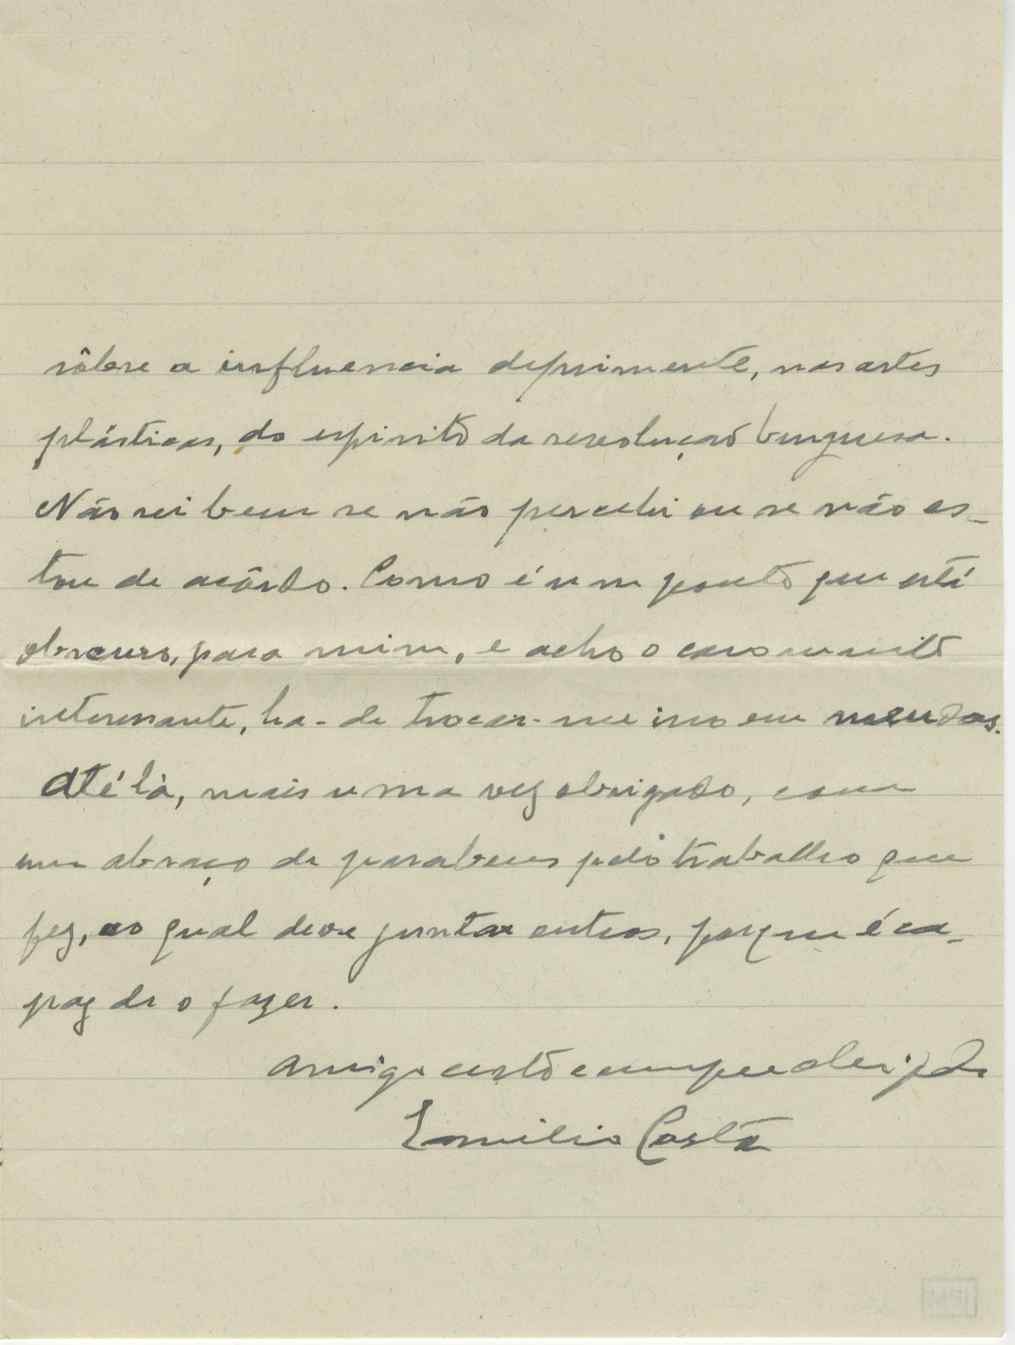 sôbre a influencia deprimente, nas artes
plásticas, do espirito da revolução burguesa.
Não sei bem se não percebi ou se não es-
tou de acôrdo. Como é um ponto que está
obscuro, para mim, e acho o caso muito
interessante, ha-de trocar-me isso em meudos.
Até lá, mais uma vez obrigado, com
um abraço de parabens pelo trabalho que
fez, ao qual deve juntar outros, porque é ca-
paz de o fazer.
Amigo certo e
Emilio Costa